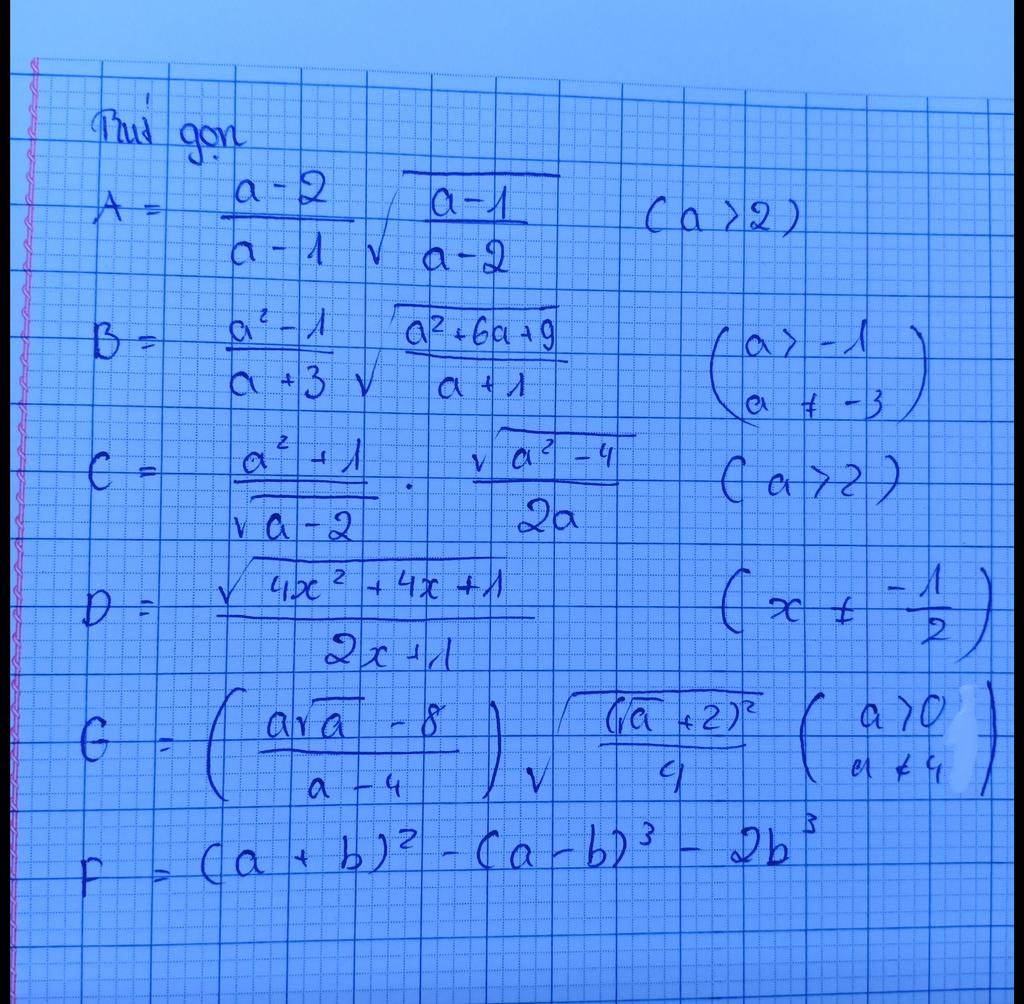 Rút gọn
A = \frac{a-2}{a-1} \sqrt{\frac{a-1}{a-2}} (a > 2)
B = \frac{a^2-1}{a+3} \sqrt{\frac{a^2+6a+9}{a+1}} (a > -1, a ≠ -3)
C = \frac{a^2+1}{\sqrt{a-2}} . \frac{\sqrt{a^2-4}}{2a} (a > 2)
D = \frac{\sqrt{4x^2+4x+1}}{2x+1} (x ≠ \frac{-1}{2})
G = (\frac{a\sqrt{a}-8}{a-4}) \sqrt{\frac{(\sqrt{a}+2)^2}{4}} (a > 0, a ≠ 4)
F = (a+b)^2 - (a-b)^3 - 2b^3